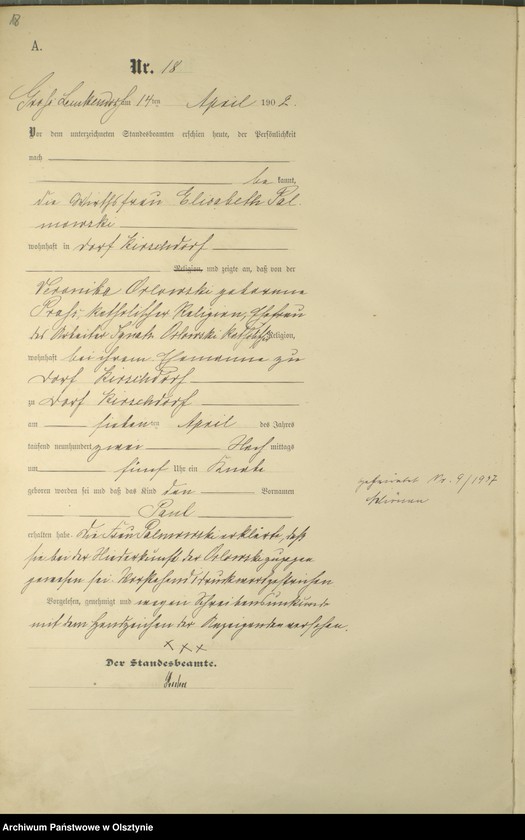 18
A.
Nr. 18
Groß Lemkendorf am 14ten April 1902.
Vor dem unterzeichneten Standesbeamten erschien heute, der Persönlichkeit
nach
be kannt,
die Wirthsfrau Elisabeth Pal-
mowski
wohnhaft in Dorf Kirschdorf
Religion, und zeigte an, daß von der
Veronika Orlowski geborenne
katholischer Religion, Ehefrau
des Arbeiter Ignatz Orlowski katholisch Religion,
wohnhaft bei ihrem Ehemanne zu
Dorf Kirschdorf
zu Dorf Kirschdorf
am sieben ten April des Jahres
tausend neunhundert zwei Nach mittags
um fünf Uhr ein Knabe
geboren worden sei und daß das Kind den Vornamen
Paul
erhalten habe. Die Frau Palmowski erklärte, daß
sie bei der Niederkunft der Orlowski zugegen
gewesen sei. Vorstehend 1 Druckwort gestrichen
Vorgelesen, genehmigt und wegen Schreibensunkunde
mit dem Handzeichen der Anzeigenden versehen.
+++
Der Standesbeamte.
geheiratet Nr. 9/1937
Archiwum Państwowe w Olsztynie